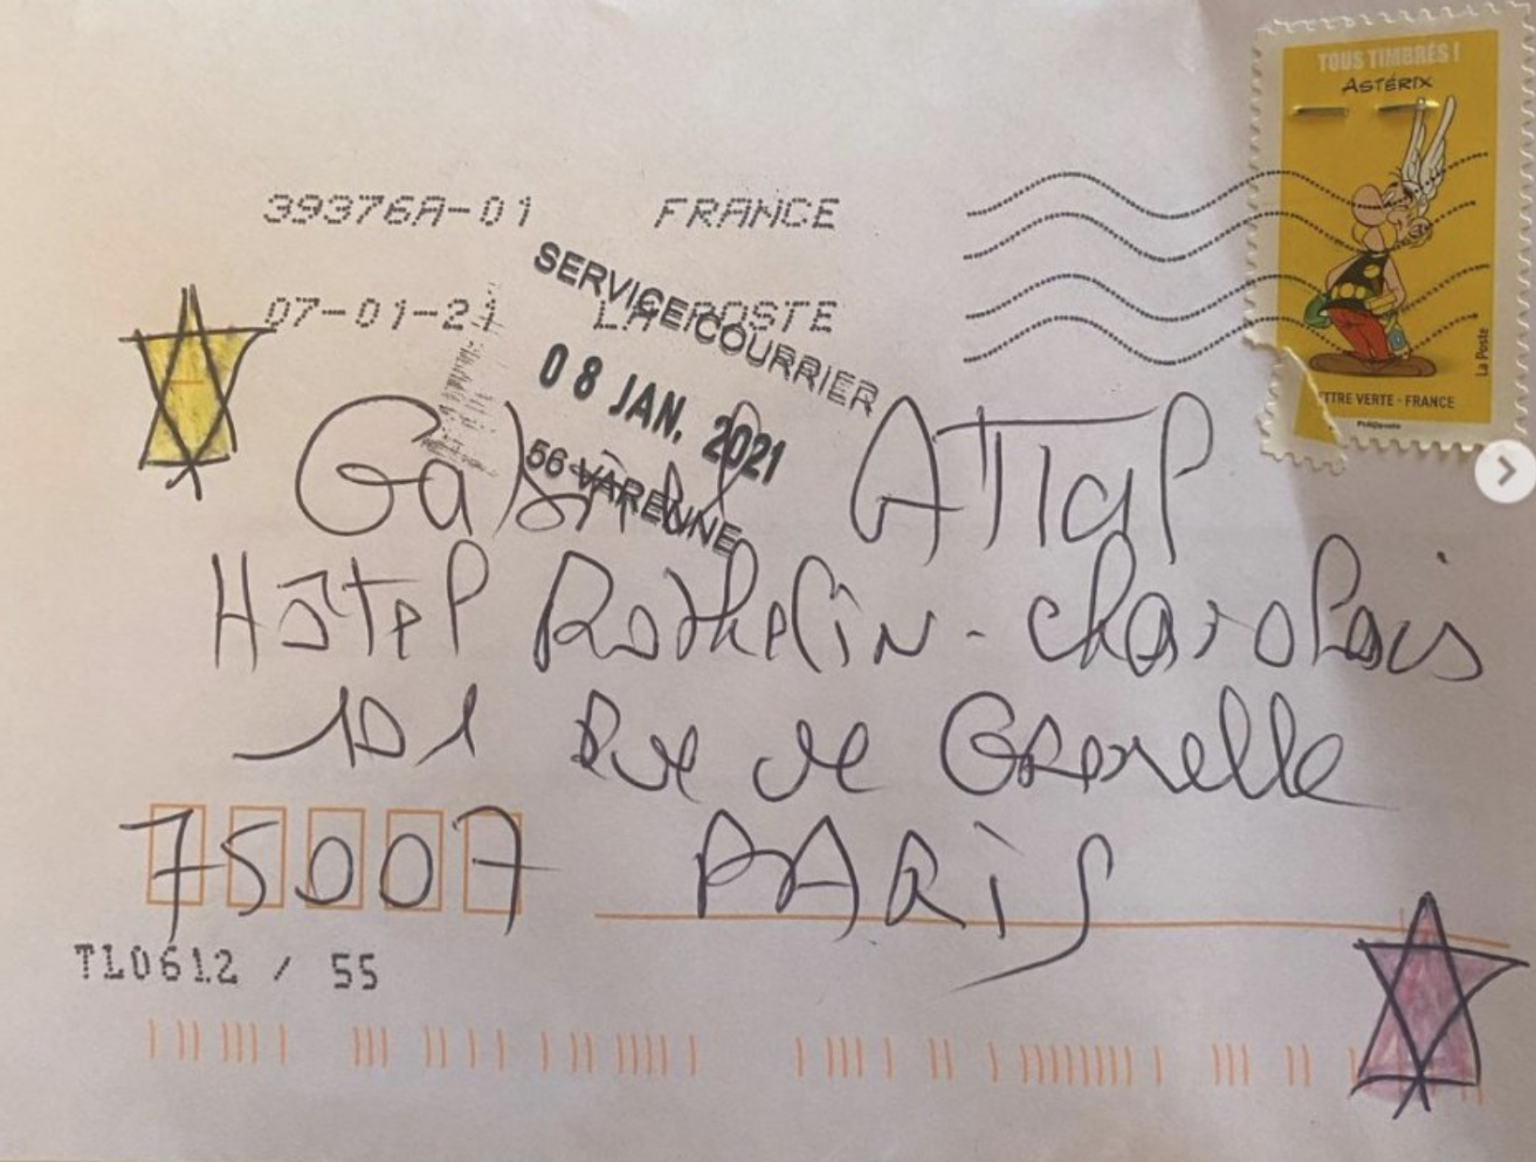 TOUS TIMBRÉS !
ASTÉRIX
39376A-01 FRANCE
07-01-21 LA POSTE
SERVICE COURRIER
08 JAN. 2021
56 VARENNE
La Poste
LETTRE VERTE - FRANCE
Phil@poste
Gabriel ATTal
Hôtel Rothelin-charolais
101 Rue de Grenelle
75007 PARIS
TL0612 / 55